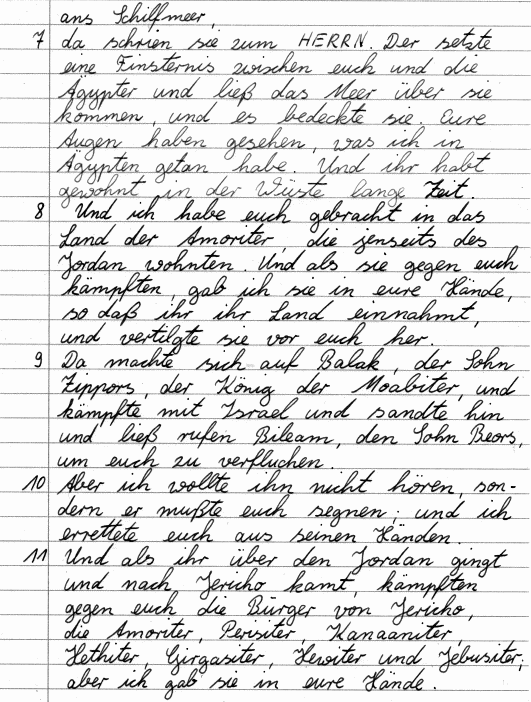 ans Schilfmeer,
7 da schrien sie zum HERRN. Der setzte
eine Finsternis zwischen euch und die
Ägypter und ließ das Meer über sie
kommen, und es bedeckte sie. Eure
Augen haben gesehen, was ich in
Ägypten getan habe. Und ihr habt
gewohnt in der Wüste lange Zeit.
8 Und ich habe euch gebracht in das
Land der Amoriter, die jenseits des
Jordan wohnten. Und als sie gegen euch
kämpften, gab ich sie in eure Hände,
so daß ihr ihr Land einnahmt,
und vertilgte sie vor euch her.
9 Da machte sich auf Balak, der Sohn
Zippors, der König der Moabiter, und
kämpfte mit Israel und sandte hin
und ließ rufen Bileam, den Sohn Beors,
um euch zu verfluchen.
10 Aber ich wollte ihn nicht hören, son-
dern er mußte euch segnen; und ich
errettete euch aus seinen Händen.
11 Und als ihr über den Jordan gingt
und nach Jericho kamt, kämpften
gegen euch die Bürger von Jericho,
die Amoriter, Perisiter, Kanaaniter,
Hethiter, Girgasiter, Hewiter und Jebusiter;
aber ich gab sie in eure Hände.